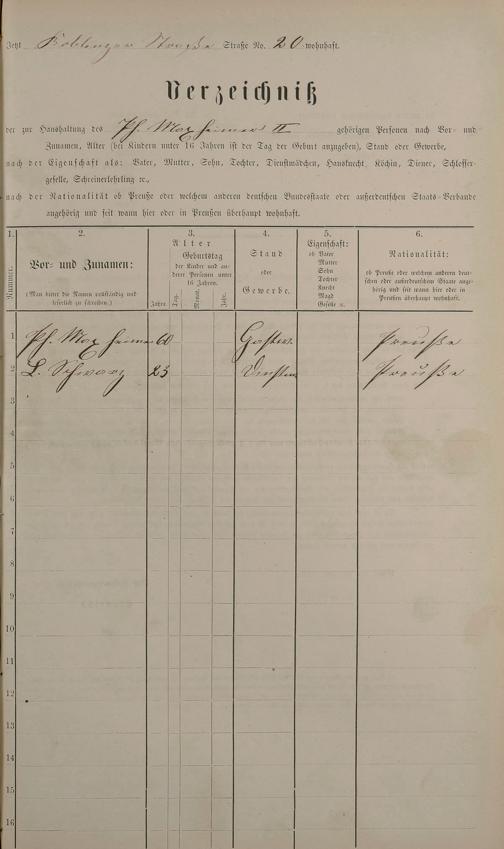 Jetzt Koblenzer Straße Straße No. 20 wohnhaft.
Verzeichniß
der zur Haushaltung des Ph. Maxheimer II gehörigen Personen nach Vor- und
Zunamen, Alter (bei Kindern unter 16 Jahren ist der Tag der Geburt anzugeben), Stand oder Gewerbe,
nach der Eigenschaft als: Vater, Mutter, Sohn, Tochter, Dienstmädchen, Hausknecht, Köchin, Diener, Schlosser-
geselle, Schreinerlehrling ꝛc.,
nach der Nationalität ob Preuße oder welchem anderen deutschen Bundesstaate oder außerdeutschen Staats-Verbande
angehörig und seit wann hier oder in Preußen überhaupt wohnhaft.
1. 2. 3. 4. 5. 6.
Nummer.
Vor- und Zunamen:
(Man bittet die Namen vollständig und
leserlich zu schreiben.)
Alter
Geburtstag
der Kinder und an-
derer Personen unter
16 Jahren.
Jahre. Tag. Monat. Jahr.
Stand
oder
Gewerbe.
Eigenschaft:
ob Vater
Mutter
Sohn
Tochter
Knecht
Magd
Geselle ꝛc.
Nationalität:
ob Preuße oder welchem anderen deut-
schen oder außerdeutschen Staate ange-
hörig und seit wann hier oder in
Preußen überhaupt wohnhaft.
1 Ph. Maxheimer 60 Gastw. Preuße
2 L. Schwarz 23 Preuße
3
4
5
6
7
8
9
10
11
12
13
14
15
16